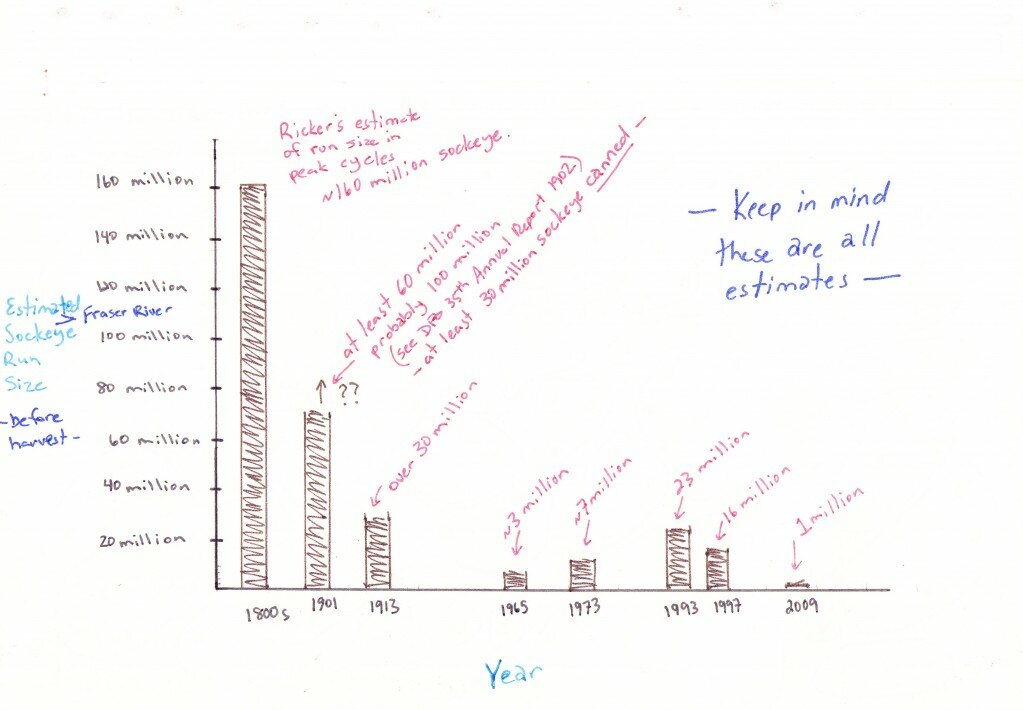 Ricker's estimate
of run size in
peak cycles
~160 million sockeye.
160 million
140 million
120 million
100 million
80 million
60 million
40 million
20 million
Estimated
Sockeye
Run
Size
> Fraser River
- before
harvest -
at least 60 million
probably 100 million
(see DFO 35th Annual Report 1902)
- at least 30 million sockeye canned -
↑ ??
over 30 million
~3 million
~7 million
23 million
16 million
1 million
— Keep in mind
these are all
estimates —
1800s
1901
1913
1965
1973
1993
1997
2009
Year